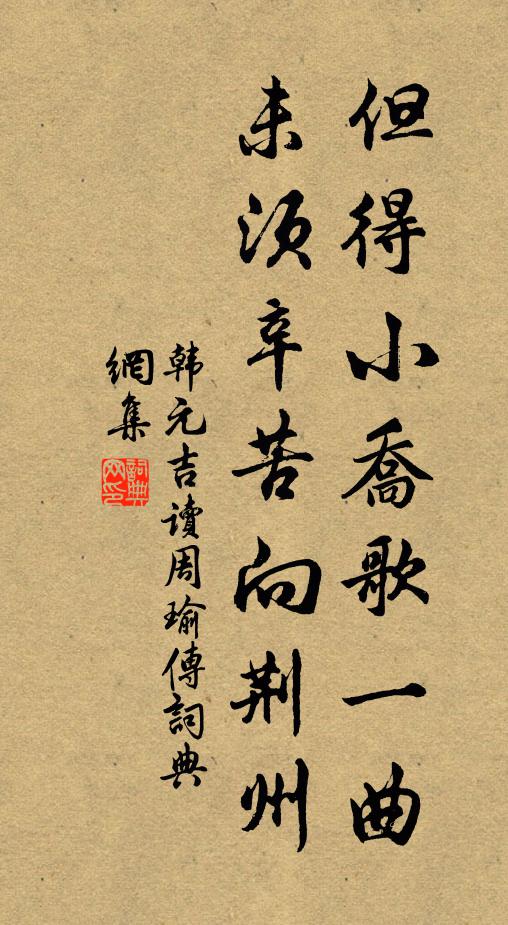 但得小喬歌一曲
未須辛苦向荆州
韩元吉讀周瑜傳詞典
網集
詞典網印